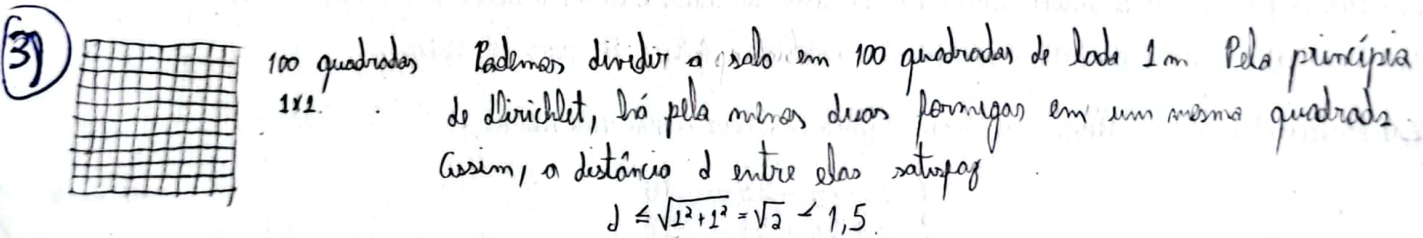 3)
100 quadrados Podemos dividir a sala em 100 quadrados de lado 1m Pelo princípio
1x1. de Dirichlet, há pelo menos duas formigas em um mesmo quadrado.
Assim, a distância d entre elas satisfaz
d ≤ √1²+1² = √2 < 1,5.